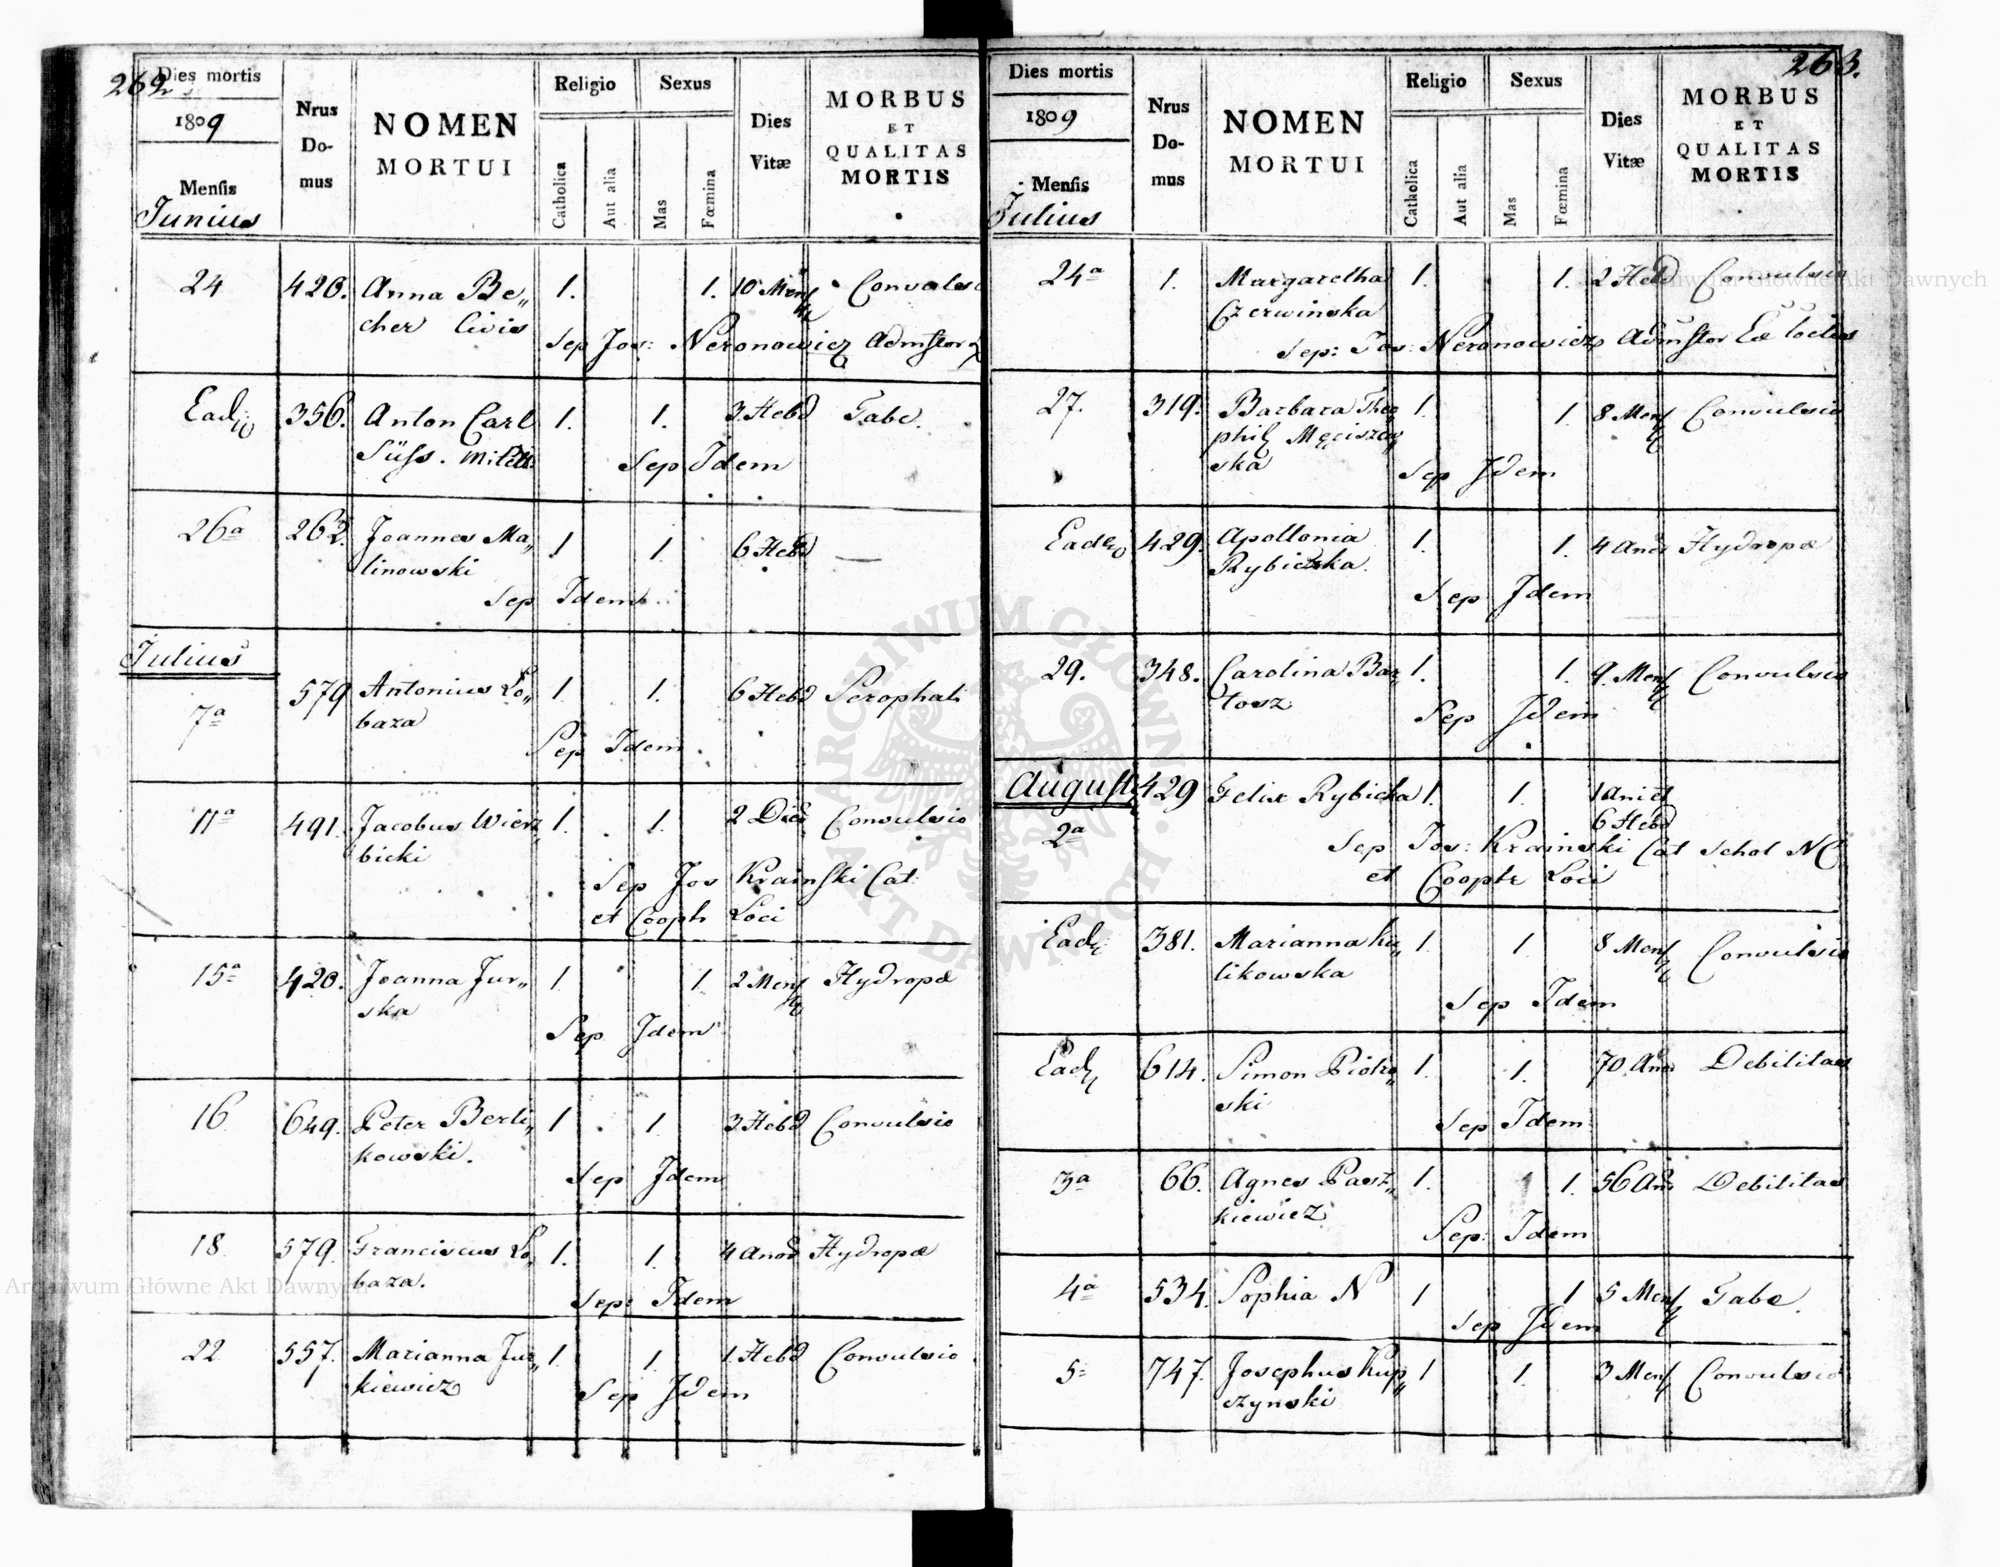 262
Dies mortis
1809
Mensis
Junius
Nrus
Do-
mus
NOMEN
MORTUI
Religio
Catholica
Aut alia
Sexus
Mas
Fœmina
Dies
Vitæ
MORBUS
ET
QUALITAS
MORTIS
24 420. Anna Be„ 1. 1. 10 Mens Convulsi
cher Civis
Sep Jos: Neronowicz Admstor
Ead 356. Anton Carl 1. 1. 3 Hebd Tabe.
Süss. Milit
Sep Idem
26a 262. Joannes Ma„ 1 1. 6 Hebd —
linowski
Sep Idem
Julius
7a 579 Antonius Lo„ 1. 1. 6 Hebd Scrophali
baza
Sep Idem
11a 491. Jacobus Wierz„ 1. 1. 2 Dies Convulsio
bicki
Sep Jos Krainski Cat
et Cooptr Loci
15a 420. Joanna Jur„ 1. 1. 2 Mens Hydropæ
ska
Sep Idem
16 649. Peter Berli„ 1 1. 3 Hebd Convulsio
kowski.
Sep Idem
18 579. Franciscus Lo„ 1. 1. 4 Anor Hydropæ
baza.
Sep: Idem
22 557. Marianna Jur„ 1. 1. 1. Hebd Convulsio
kiewicz
Sep Idem
263.
Dies mortis
1809
Mensis
Julius
Nrus
Do-
mus
NOMEN
MORTUI
Religio
Catholica
Aut alia
Sexus
Mas
Fœmina
Dies
Vitæ
MORBUS
ET
QUALITAS
MORTIS
24a 1. Margaretha 1. 1. 2 Hebd Convulsio
Czerwinska
Sep: Jos: Neronowicz Admstor
27. 319. Barbara Theo„ 1. 1. 8 Mens Convulsio
phil Męciszew„
ska
Sep Idem
Ead 429. Apollonia 1. 1. 4 Anor Hydropæ
Rybicka.
Sep Idem
29. 348. Carolina Bar„ 1. 1. 9. Mens Convulsio
tosz
Sep Idem
Augusti 429 Felix Rybicka 1. 1. 1 Ani et
2a 6 Hebd
Sep Jos: Krainski Cat Schol NC
et Cooptr Loci
Ead 381. Marianna Ku„ 1. 1 8 Mens Convulsio
likowska
Sep Idem
Ead 614. Simon Piotro„ 1. 1. 70 Anor Debilitas
ski
Sep Idem
3a 66. Agnes Pasz„ 1. 1. 56 Anor Debilitas
kiewicz
Sep: Idem
4a 534. Sophia N 1 1 5 Mens Tabe.
Sep Idem
5 747. Josephus Kup„ 1 1. 3 Mens Convulsio
szynski
ARCHIWUM GŁÓWNE AKT DAWNYCH
Archiwum Główne Akt Dawnych
Archiwum Główne Akt Dawnych